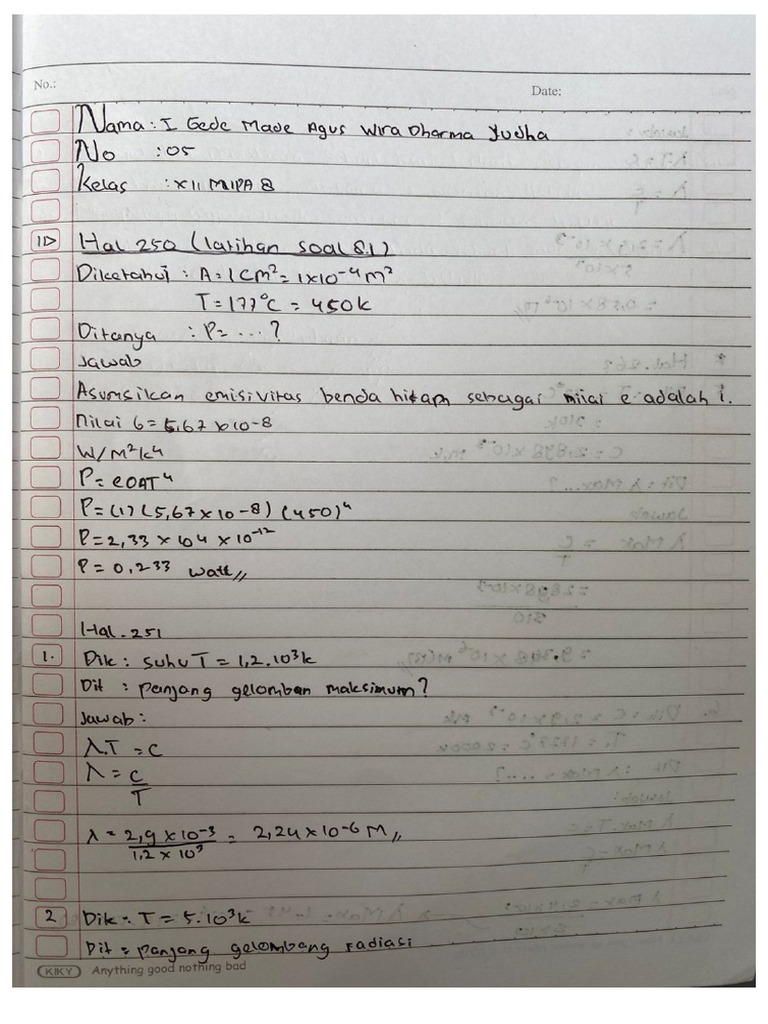 No.:
Date:
Nama : I Gede Made Agus Wira Dharma Yudha
No : 05
Kelas : XII MIPA 8
1) Hal 250 (latihan soal 8.1)
Diketahui : A = 1 cm² = 1x10⁻⁴ m²
T = 177°C = 450k
Ditanya : P = ... ?
Jawab
Asumsikan emisivitas benda hitam sebagai nilai e adalah 1.
nilai σ = 5,67 x 10-8
W/m²k⁴
P = eσAT⁴
P = (1) (5,67 x 10-8) (450)⁴
P = 2,33 x 104 x 10⁻¹²
P = 0,233 watt //
Hal. 251
1. Dik : suhu T = 1,2.10³k
Dit : panjang gelomban maksimum?
Jawab :
λ.T = C
λ = C/T
λ = 2,9 x 10⁻³ / 1,2 x 10³ = 2,24 x 10-6 M //
2 Dik : T = 5.10³k
Dit = panjang gelombang radiasi
KIKY Anything good nothing bad